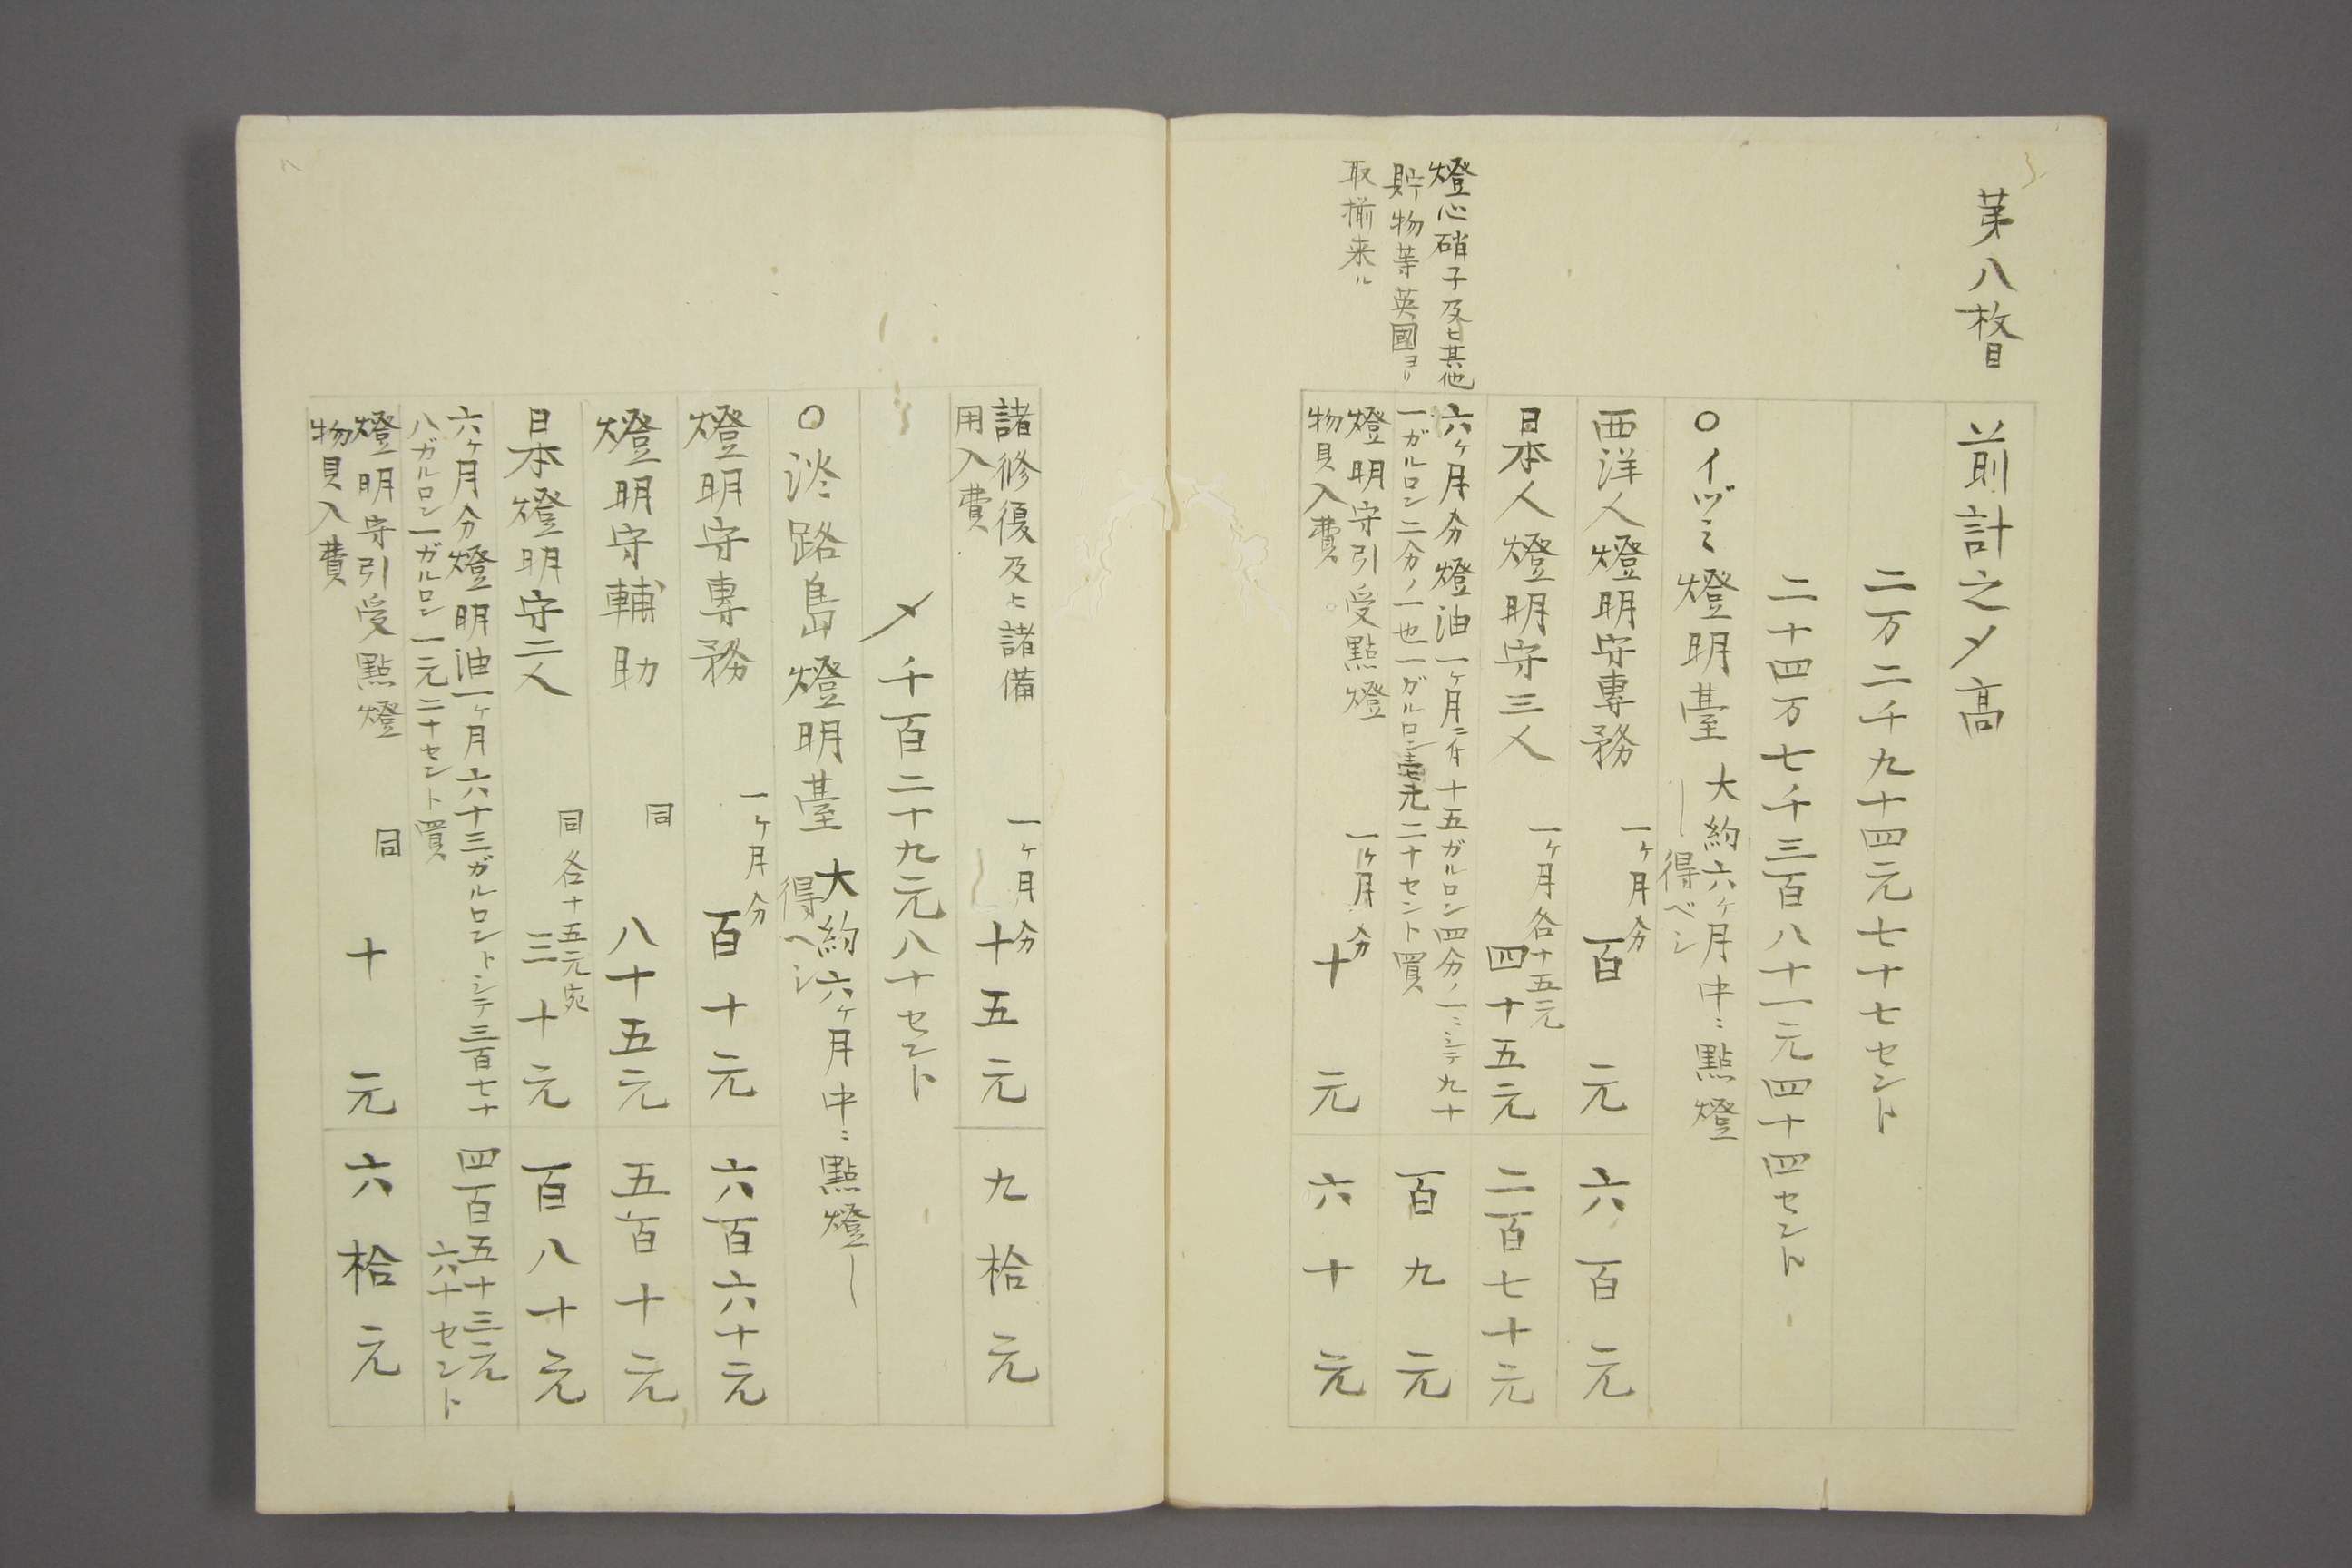 第八枚目
前計之〆高
二万二千九十四元七十七セント
二十四万七千三百八十一元四十四セント
○イヅミ燈明臺 大約六ヶ月中ニ點燈
シ得ベシ
西洋人燈明守專務 一ヶ月分 百元 六百元
日本人燈明守三人 一ヶ月各十五元 四十五元 二百七十元
燈心硝子及ヒ其他
貯物等英國ヨリ
取揃来ル
六ヶ月分燈油一ヶ月ニ付十五ガルロン四分ノ一ニシテ九十
一ガルロン二分ノ一也一ガルロン壹元二十セント買 百九元
燈明守引受點燈
物買入費 一ヶ月分 十元 六十元
諸修復及ヒ諸備
用入費 一ヶ月分 十五元 九拾元
〆千百二十九元八十セント
○淡路島燈明臺 大約六ヶ月中ニ點燈シ
得ヘシ
燈明守專務 一ヶ月分 百十元 六百六十元
燈明守輔助 同 八十五元 五百十元
日本燈明守二人 同各十五元宛 三十元 百八十元
六ヶ月分燈明油一ヶ月六十三ガルロントシテ三百七十
八ガルロン一ガルロン一元二十セント買 四百五十三元
六十セント
燈明守引受點燈
物買入費 同 十元 六拾元